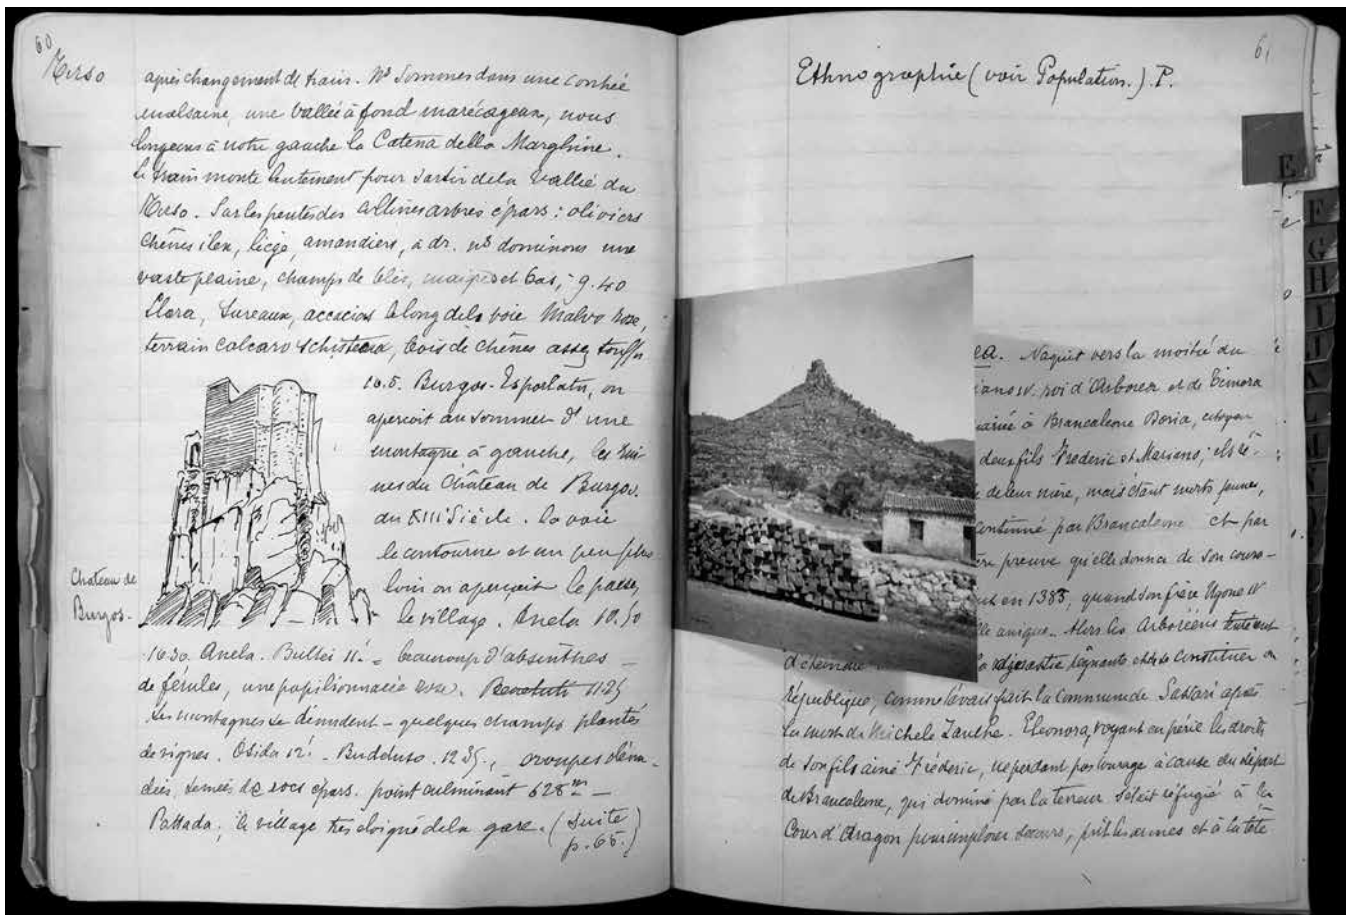 60
Tirso
après changement de train. Ns sommes dans une contrée
malsaine, une vallée à fond marécageux, nous
longeons à notre gauche la Catena della Marghine.
Le train monte lentement pour sortir de la vallée du
Tirso. Sur les pentes des collines arbres épars : oliviers
chênes ilex, liège, amandiers, à dr. ns dominons une
vaste plaine, champs de blés, maigres et bas, 9.40
Sureaux, accacias le long de la voie Malva rose,
terrain calcaro schisteux, bois de chênes assez touffu
10.5. Burgos-Esporlatu, on
aperçoit au sommet d'une
montagne à gauche, les rui-
nes du Château de Burgos.
du XIIIe Siècle. La voie
le contourne et un peu plus
loin on aperçoit le
le village. Anela 10.50
Chateau de
Burgos-
1030. Anela. Bultei 11' = beaucoup d'absinthes -
de férules, une papilionnacée rose. 1125
Les montagnes se dénudent - quelques champs plantés
de vignes. Osida 12' - Budduso. 1235.,
semées de rocs épars. point culminant 628m -
Pattada, le village très éloigné de la gare. (Suite
p. 65.)
61
Ethnographie (voir Population.) P.
E
F
G
H
I
J
K
L
M
N
ea. Naquit vers la moitié du
iano IV. roi d'Arborea et de Timora
mariée à Brancaleone Doria, citoyen
deux fils Frederic et Mariano; ils
de leur mère, mais étant morts jeunes,
continué par Brancaleone et par
preuve qu'elle donna de son coura-
en 1383, quand son frère Ugone IV
unique. Alors les Arboréens tentèrent
d'éteindre la dynastie régnante et de se constituer en
République, comme l'avait fait la Commune de Sassari après
la mort de Michele Zanche. Eleonora, voyant en péril les droits
de son fils ainé Frédéric, ne perdant pas courage à cause du départ
de Brancaleone, qui dominé par la terreur s'était réfugié à la
Cour d'Aragon pour implorer secours, prit les armes et à la tête